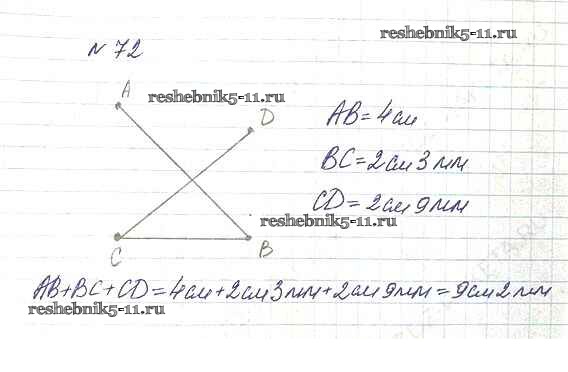 № 72
reshebnik5-11.ru
A
reshebnik5-11.ru
D
AB = 4 см
BC = 2 см 3 мм
CD = 2 см 9 мм
reshebnik5-11.ru
C
B
AB + BC + CD = 4 см + 2 см 3 мм + 2 см 9 мм = 9 см 2 мм
reshebnik5-11.ru